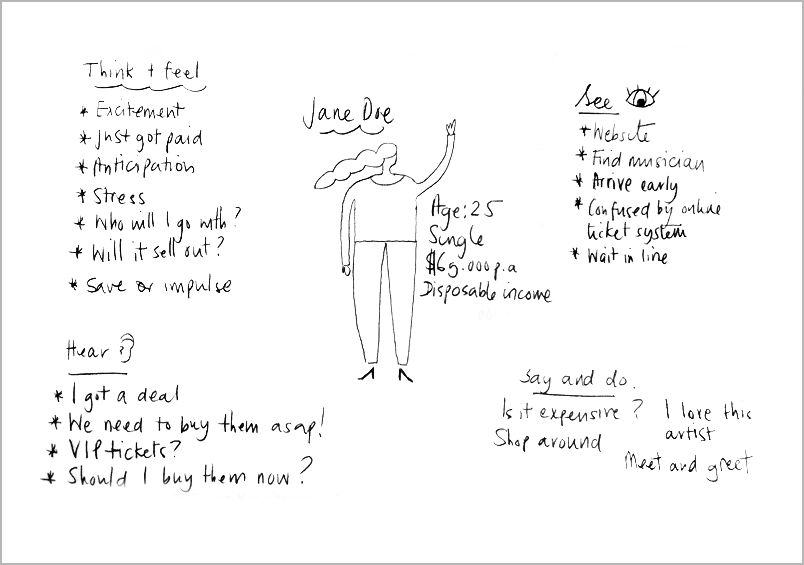 Think + feel
* Excitement
* Just got paid
* Anticipation
* Stress
* Who will I go with?
* Will it sell out?
* Save or impulse
Jane Doe
Age: 25
Single
$65.000p.a
Disposable income
See
* Website
* Find musician
* Arrive early
* Confused by online
ticket system
* Wait in line
Hear
* I got a deal
* We need to buy them asap!
* VIP tickets?
* Should I buy them now?
Say and do.
Is it expensive?
Shop around
I love this
artist
Meet and greet